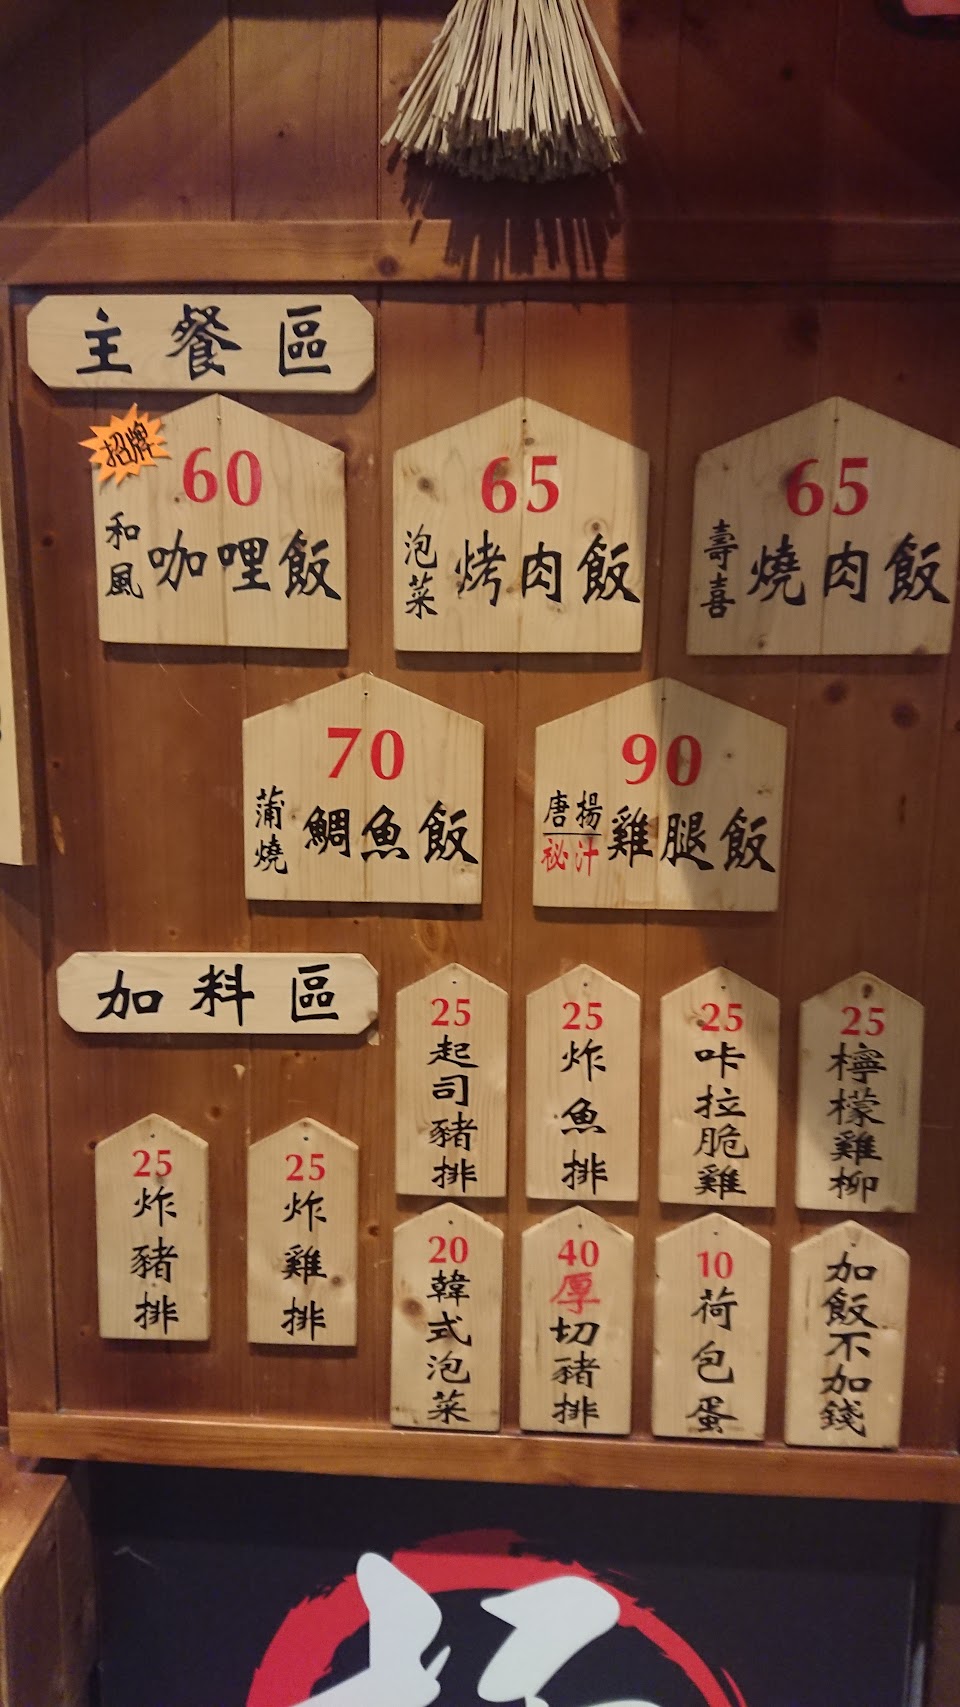 主餐區
招牌
60
和風咖哩飯
65
泡菜烤肉飯
65
壽喜燒肉飯
70
蒲燒鯛魚飯
90
唐揚
祕汁
雞腿飯
加料區
25
炸豬排
25
炸雞排
25
起司豬排
25
炸魚排
25
咔拉脆雞
25
檸檬雞柳
20
韓式泡菜
40
厚切豬排
10
荷包蛋
加飯不加錢